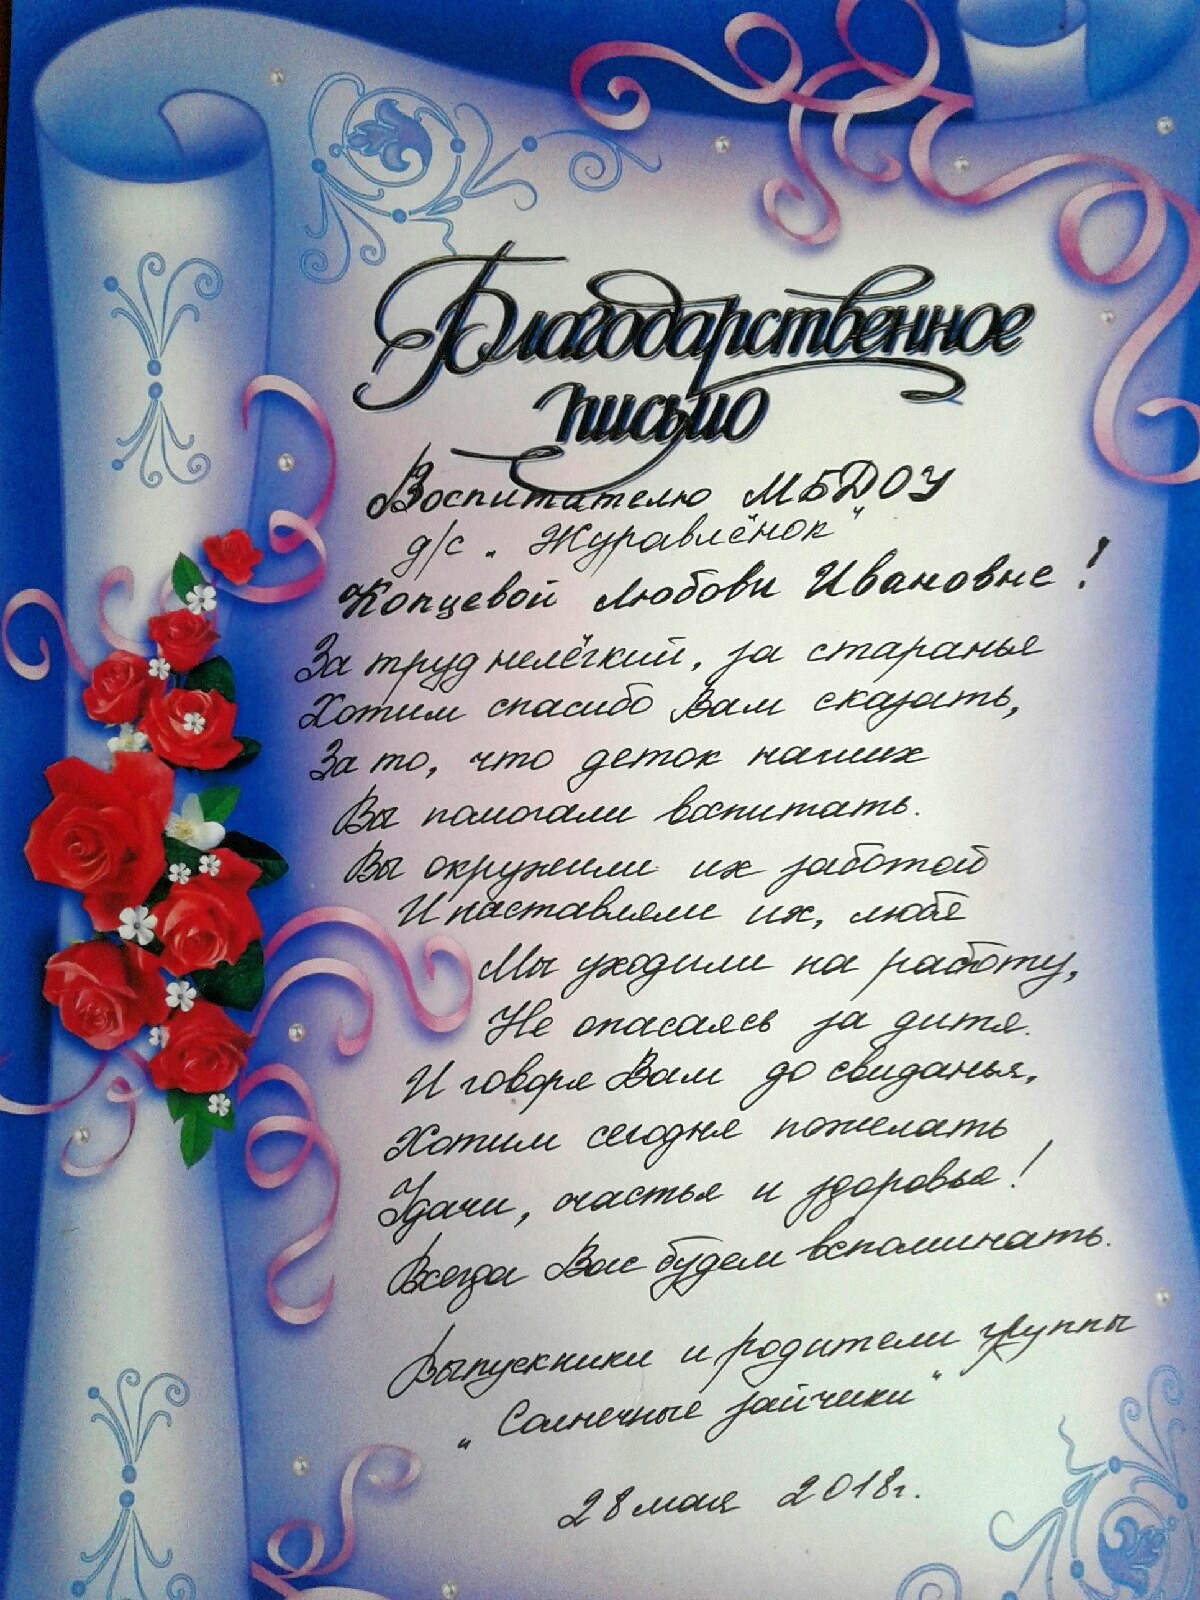 Благодарственное
письмо
Воспитателю МБДОУ
д/с „Журавлёнок“
Копцевой Любови Ивановне!
За труд нелёгкий, за старанья
Хотим спасибо Вам сказать,
За то, что деток наших
Вы помогали воспитать.
Вы окружили их заботой
И наставляли их, любя
Мы уходили на работу,
Не опасаясь за дитя.
И говоря Вам до свиданья,
Хотим сегодня пожелать
Удачи, счастья и здоровья!
Всегда Вас будем вспоминать.
Выпускники и родители группы
„Солнечные зайчики“
28 мая 2018г.